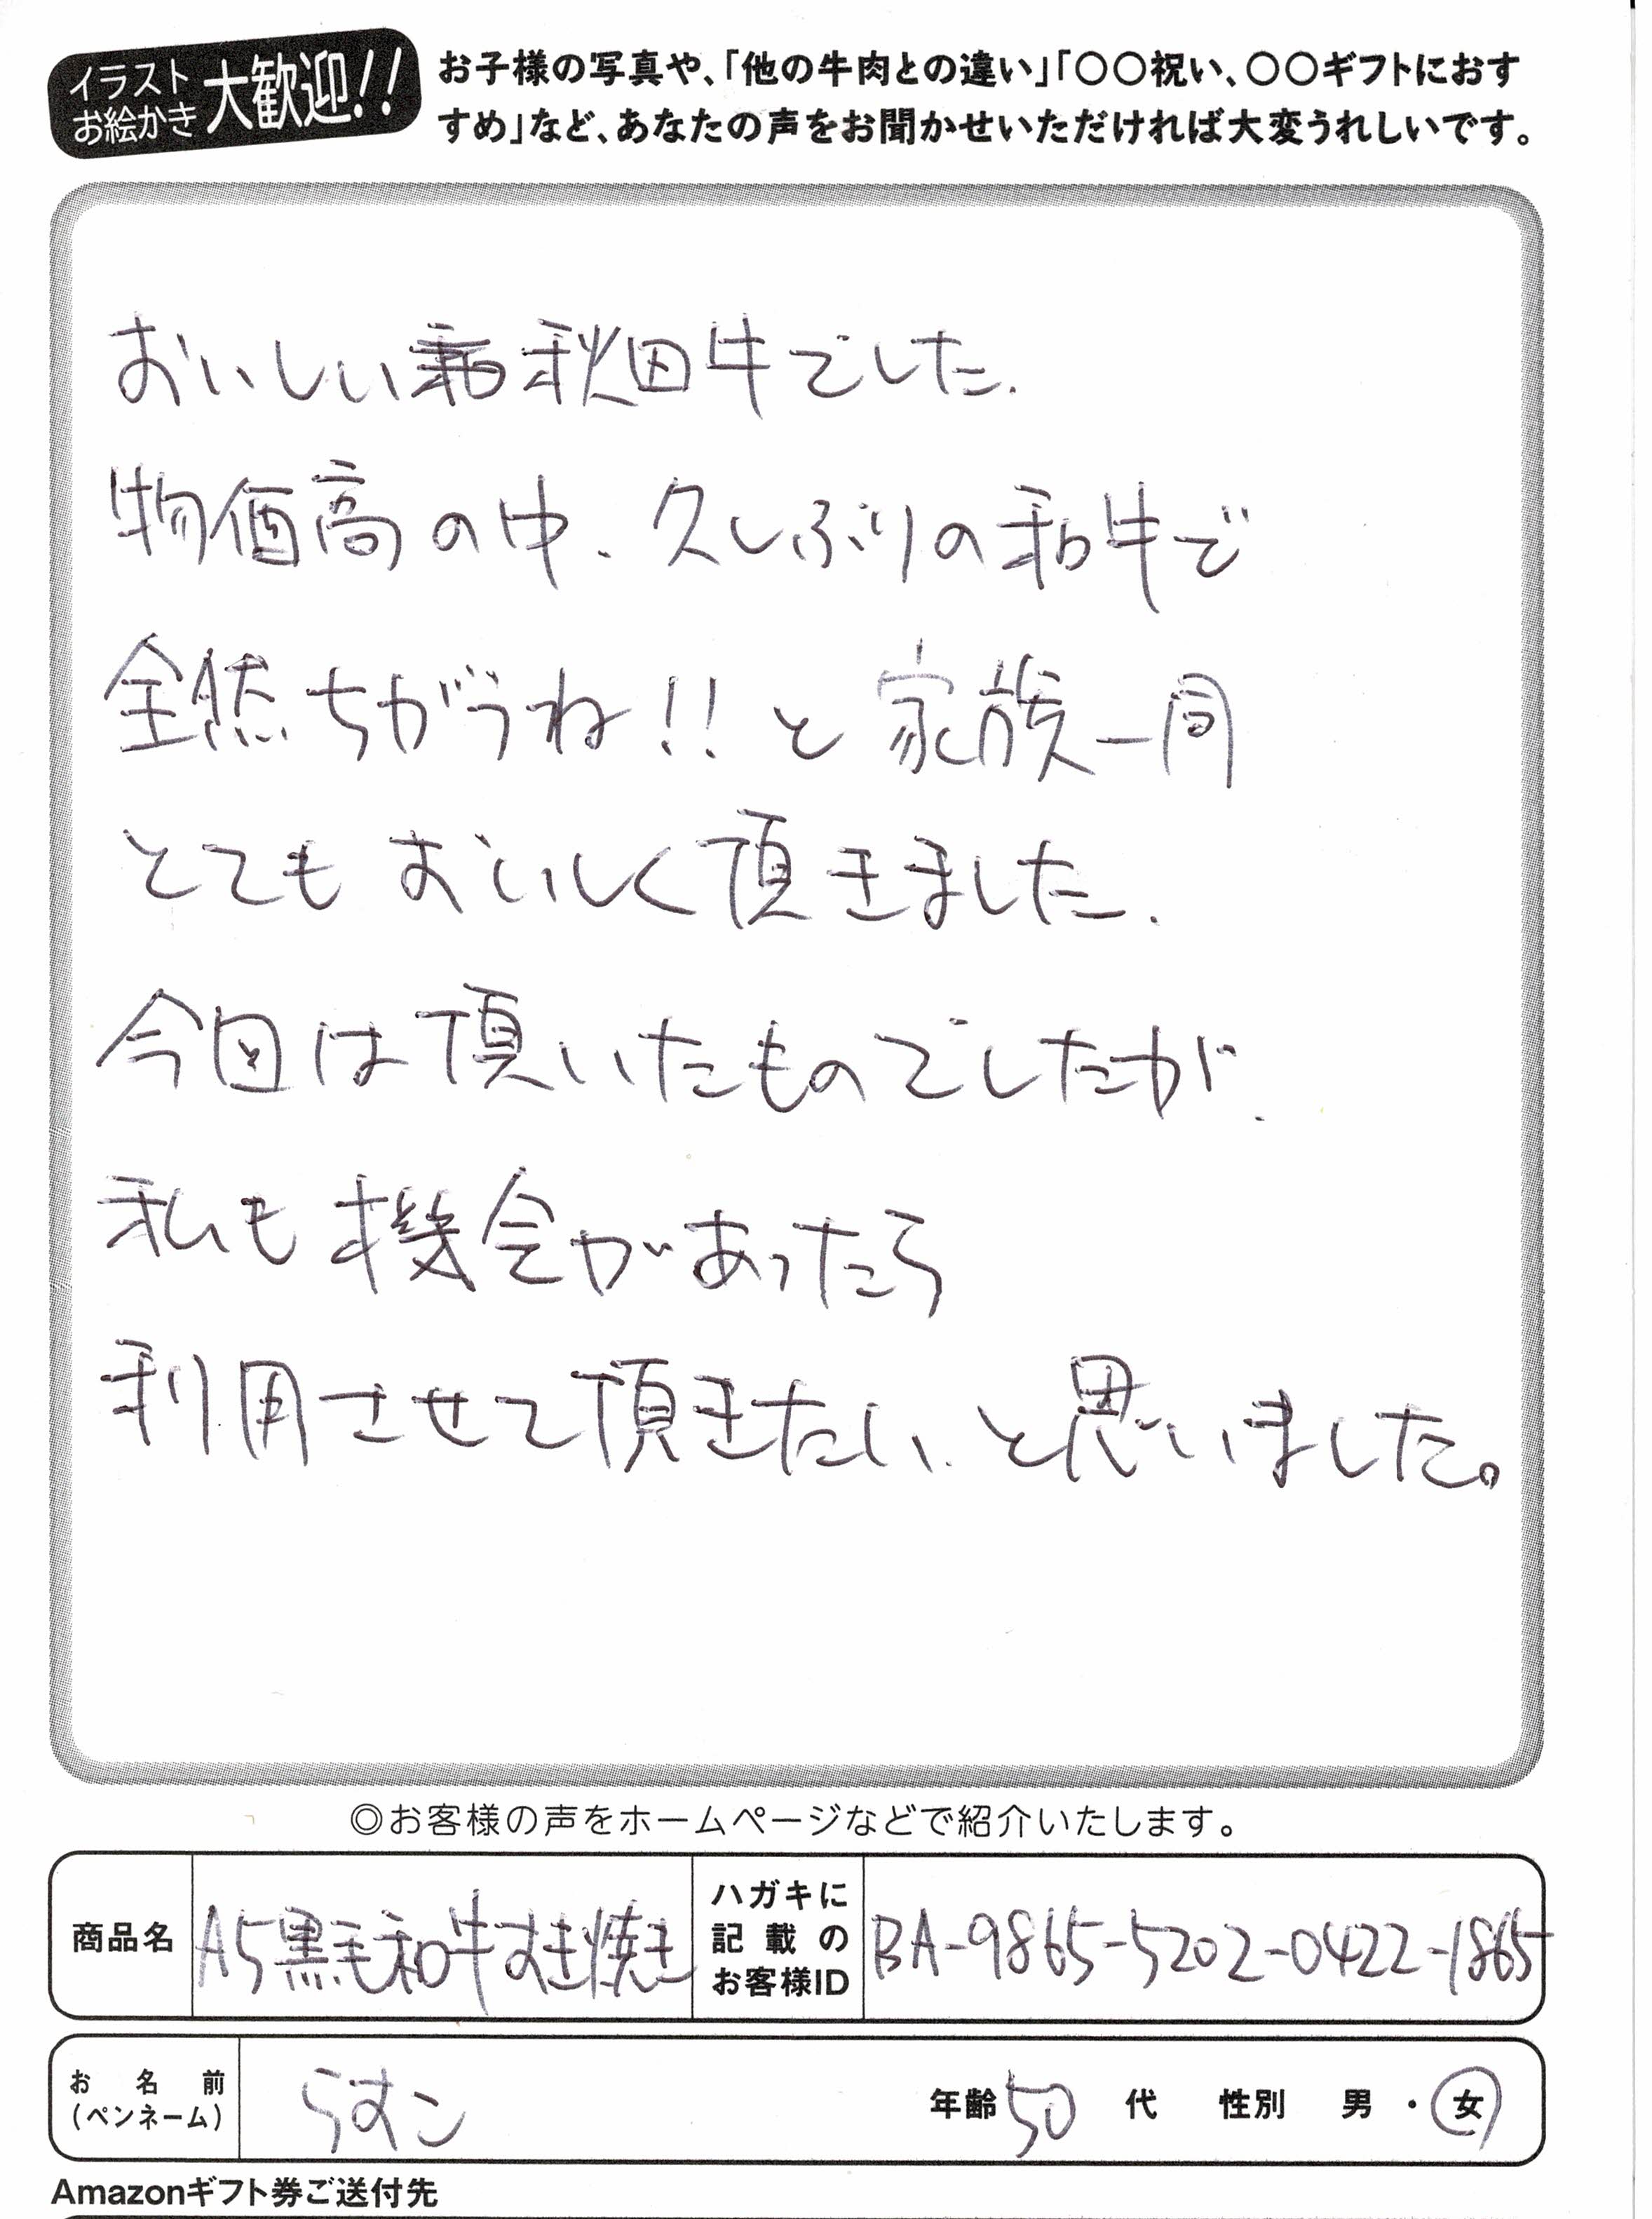 イラスト
お絵かき
大歓迎!!
お子様の写真や、「他の牛肉との違い」「〇〇祝い、〇〇ギフトにおす
すめ」など、あなたの声をお聞かせいただければ大変うれしいです。
おいしい秋田牛でした.
物価高の中、久しぶりの和牛で
全然ちがうね!!と家族一同
とてもおいしく頂きました.
今回は頂いたものでしたが、
私も機会があったら
利用させて頂きたい、と思いました。
◎お客様の声をホームページなどで紹介いたします。
商品名 A5黒毛和牛すき焼き
ハガキに
記載の
お客様ID
BA-9865-5202-0422-1865
お名前
(ペンネーム)
らすこ
年齢 50 代 性別 男・女
Amazonギフト券ご送付先